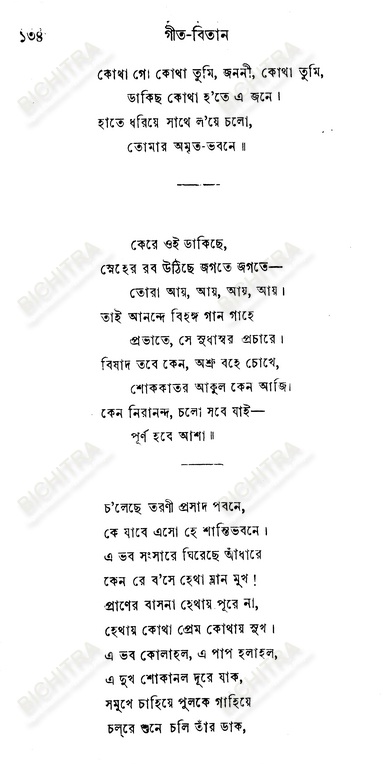 ১৩৪ গীত-বিতান
কোথা গো কোথা তুমি, জননী, কোথা তুমি,
ডাকিছ কোথা হ'তে এ জনে।
হাতে ধরিয়ে সাথে ল'য়ে চলো,
তোমার অমৃত-ভবনে॥
কেরে ওই ডাকিছে,
স্নেহের রব উঠিছে জগতে জগতে—
তোরা আয়, আয়, আয়, আয়।
তাই আনন্দে বিহঙ্গ গান গাহে
প্রভাতে, সে সুধাস্বর প্রচারে।
বিষাদ তবে কেন, অশ্রু বহে চোখে,
শোককাতর আকুল কেন আজি।
কেন নিরানন্দ, চলো সবে যাই—
পূর্ণ হবে আশা॥
চ'লেছে তরণী প্রসাদ পবনে,
কে যাবে এসো হে শান্তিভবনে।
এ ভব সংসারে ঘিরেছে আঁধারে
কেন রে ব'সে হেথা ম্লান মুখ!
প্রাণের বাসনা হেথায় পূরে না,
হেথায় কোথা প্রেম কোথায় সুখ।
এ ভব কোলাহল, এ পাপ হলাহল,
এ দুখ শোকানল দূরে যাক,
সমুখে চাহিয়ে পুলকে গাহিয়ে
চল্‌রে শুনে চলি তাঁর ডাক,
BICHITRA
BICHITRA
BICHITRA
BICHITRA
BICHITRA
BICHITRA
BICHITRA
BICHITRA